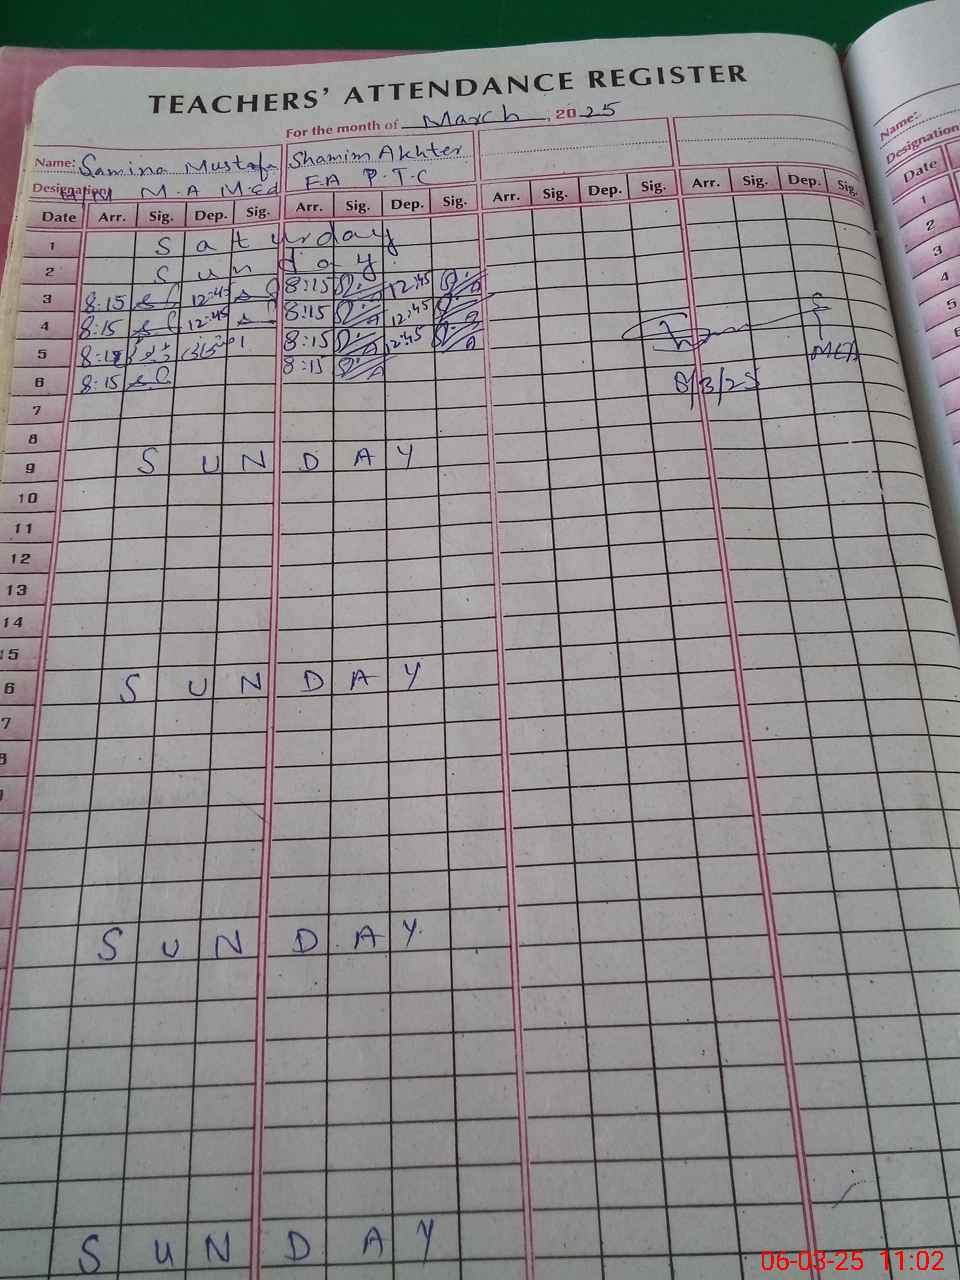 TEACHERS' ATTENDANCE REGISTER
For the month of March, 2025
Name: Samina Mustafa Shamim Akhter
Designation M.A M.Ed F.A P.T.C
Date Arr. Sig. Dep. Sig. Arr. Sig. Dep. Sig. Arr. Sig. Dep. Sig. Arr. Sig. Dep. Sig.
1 Saturday
2 Sunday
3 8:15 12:45 8:15 12:45
4 8:15 12:45 8:15 12:45
5 8:15 12:45
6 8:15 8:15
7
8
9 SUNDAY
10
11
12
13
14
15
6 SUNDAY
7
8
SUNDAY
SUNDAY
/3/25
Name:
Designation
Date
1
2
3
4
5
6
06-03-25 11:02